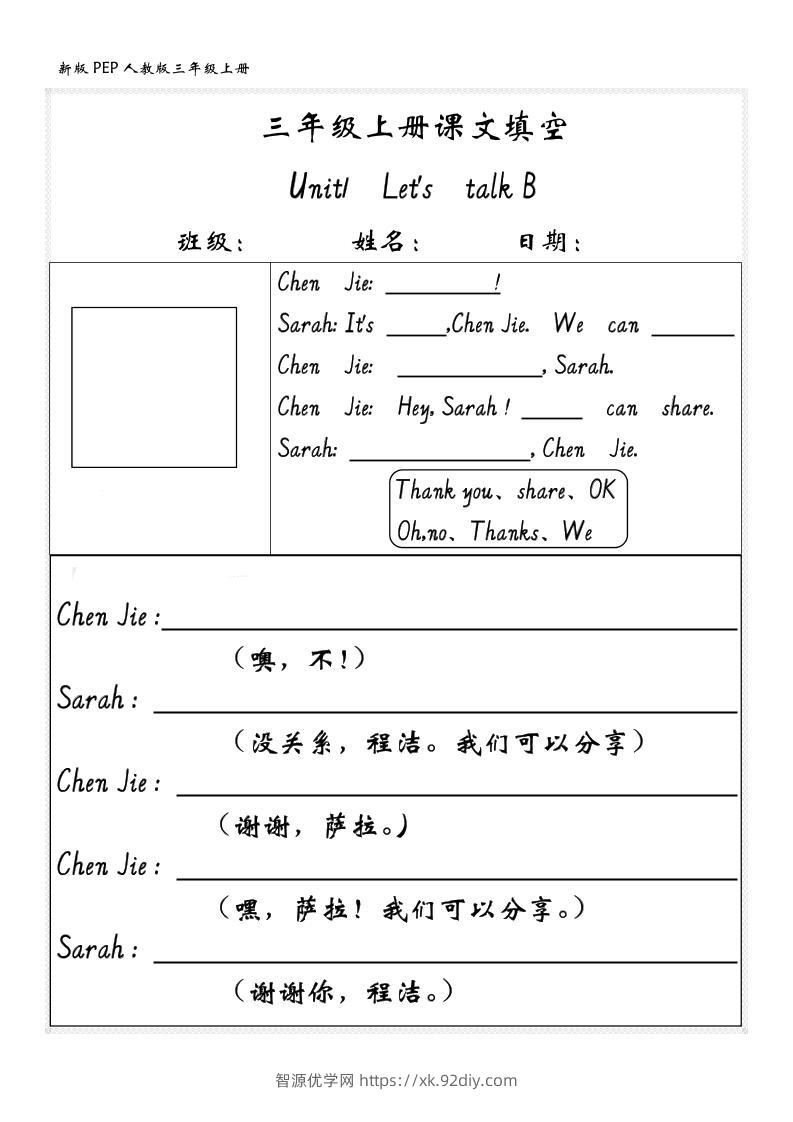 新版 PEP 人教版三年级上册
三年级上册课文填空
Unit1 Let's talk B
班级： 姓名： 日期：
Chen Jie: __________!
Sarah: It's _____,Chen Jie. We can _______
Chen Jie: ____________, Sarah.
Chen Jie: Hey, Sarah! _____ can share.
Sarah: _______________, Chen Jie.
Thank you、share、OK
Oh,no、Thanks、We
Chen Jie:
（噢，不!）
Sarah:
（没关系，程洁。我们可以分享）
Chen Jie:
（谢谢，萨拉。)
Chen Jie:
（嘿，萨拉！我们可以分享。）
Sarah:
（谢谢你，程洁。）
智源优学网 https://xk.92diy.com